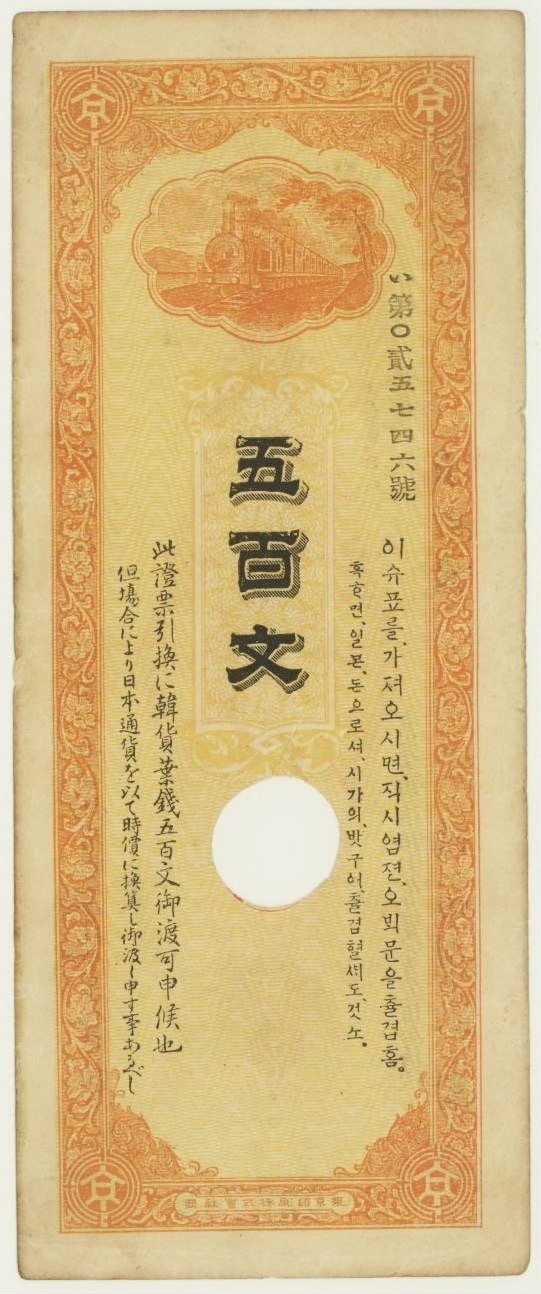 い第〇貳五七四六號
이슈표를、가져오시면、직시염젼、오ᄇᆡᆨ문을츌겸홈。
혹ᄒᆞ면、일본、돈으로셔、시가의、밧구어、츌겸헐셰도、것소。
五百文
此證票引換に韓貨葉錢五百文御渡可申候也
但場合により日本通貨を以て時價に換算し御渡し申す事あるべし
東京印刷株式會社製